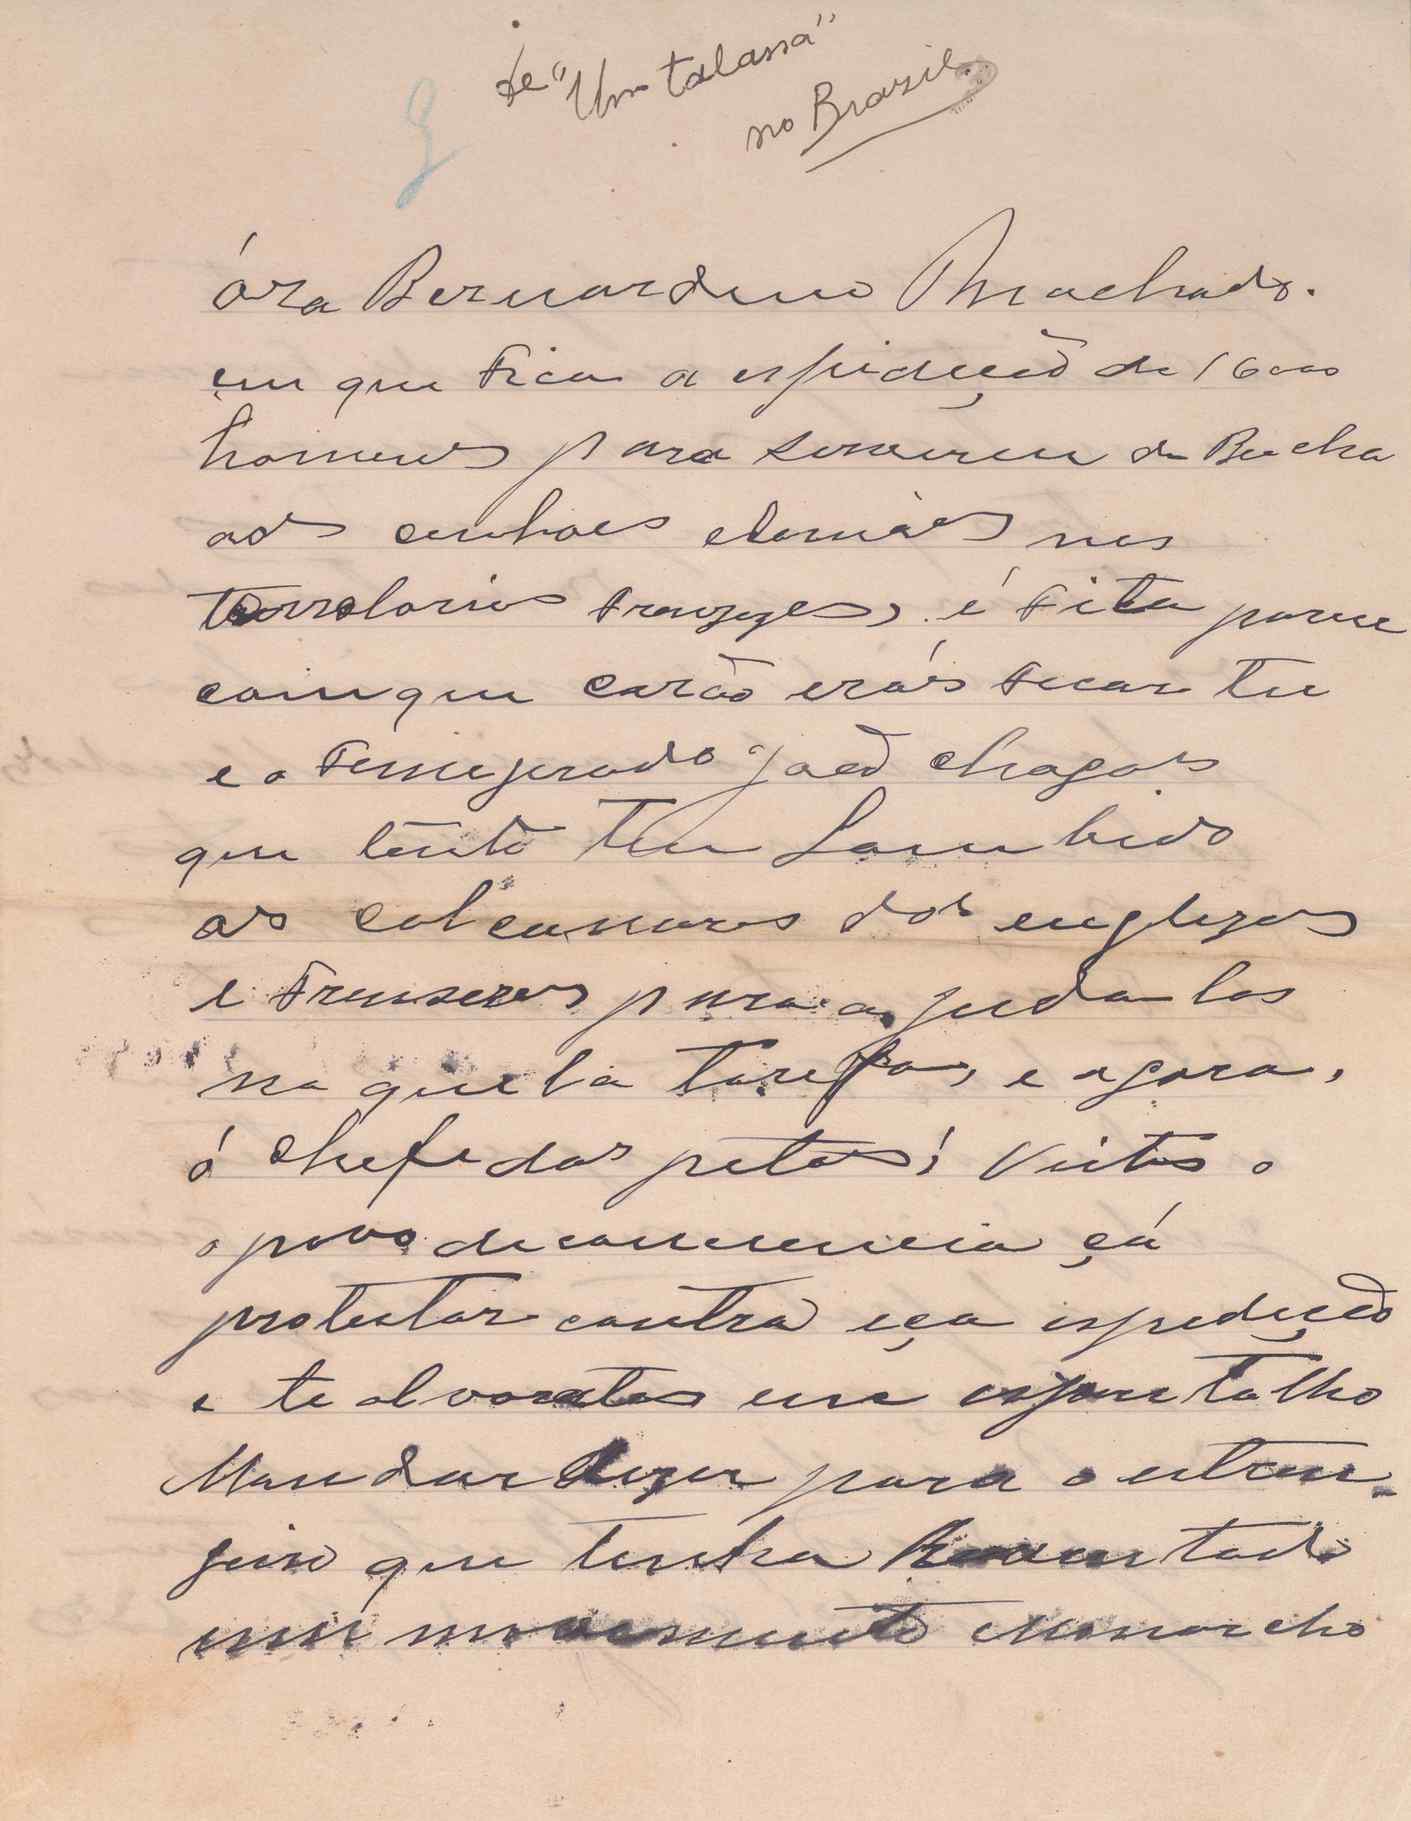 de "Um talassa"
no Brazil
óra Bernardino Machado.
em que fica a espidição de 16000
homens para serverem de Bucha
aos canhoes alemães nos
terretorios franzezes, é fita parece
com que carão erás ficar tu
e o João Chagas
que tanto tem Lambido
os calcanares dos englezes
e franseses para ajudalos
na quela tarefa, e agora,
ó chefe das petas! Vistes o
o povo de consciencia çá
protestar contra eça espedição
e te alvorates em espantalho
Mandar dizer para o estran-
geiro que tinha Rebentado
um movemento Monarcho